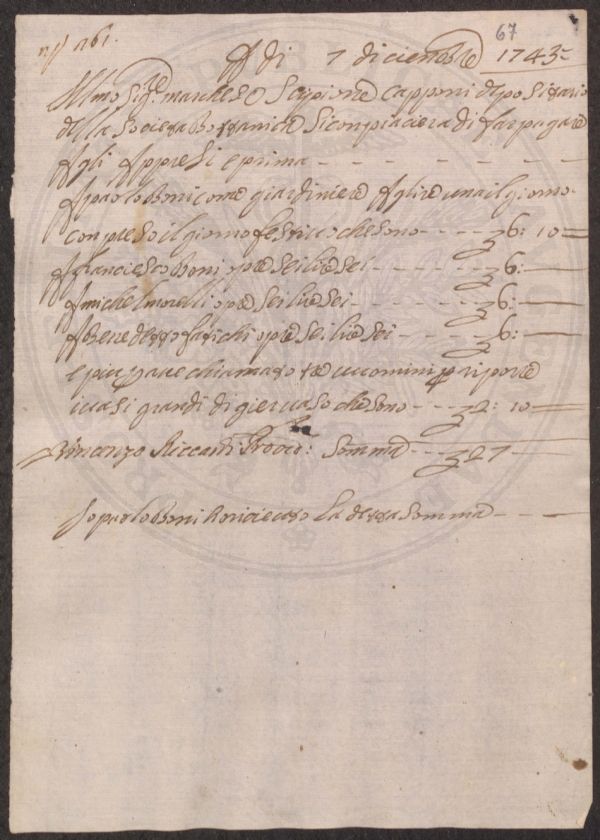 67
nº 261.
A di 7 diciembre 1743
Illmo Sigre marchese Scipione Capponi dipositario
della Societa Bottanica Si conpiaciera di far pagare
A gli Appresi e prima
A paolo Boni come giardiniere A lire una il giorno
conpreso il giorno festivo che sono - - - - £ 6: 10
A franciesco Boni opre sei lire sei - - - - £ 6:
A michel morelli opre sei lire sei - - - - £ 6:
A Benedetto fatichi opre sei lire sei - - - £ 6:
e piu p avere chiamato tre uomini p riporre
i vasi grandi di giervaso che sono - - - £ 2: 10
Vincenzo Riccardi Provo: Somma - - - £ 27
Io paolo Boni ho ricieuto La detta Somma